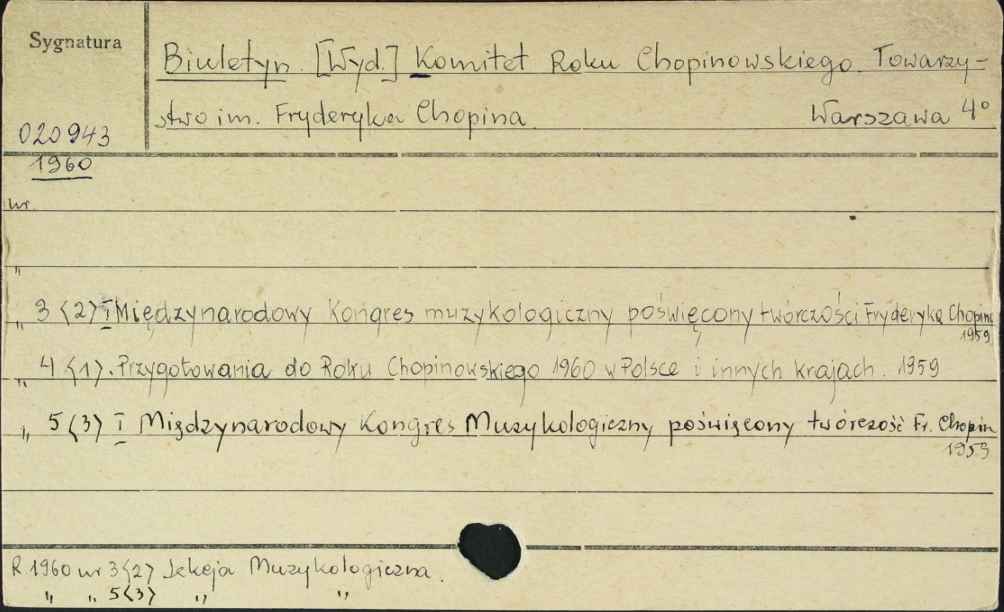 Sygnatura
Biuletyn. [Wyd.] Komitet Roku Chopinowskiego. Towarzy-
stwo im. Fryderyka Chopina. Warszawa 4°
020943
1960
nr.
"
" 3 <2> I Międzynarodowy Kongres muzykologiczny poświęcony twórczości Fryderyka Chopina
1959
" 4 <1>. Przygotowania do Roku Chopinowskiego 1960 w Polsce i innych krajach. 1959
" 5 <3> I Międzynarodowy Kongres Muzykologiczny poświęcony twórczość Fr. Chopin
1959
R 1960 nr 3 <2> Sekcja Muzykologiczna.
" " 5 <3> " "